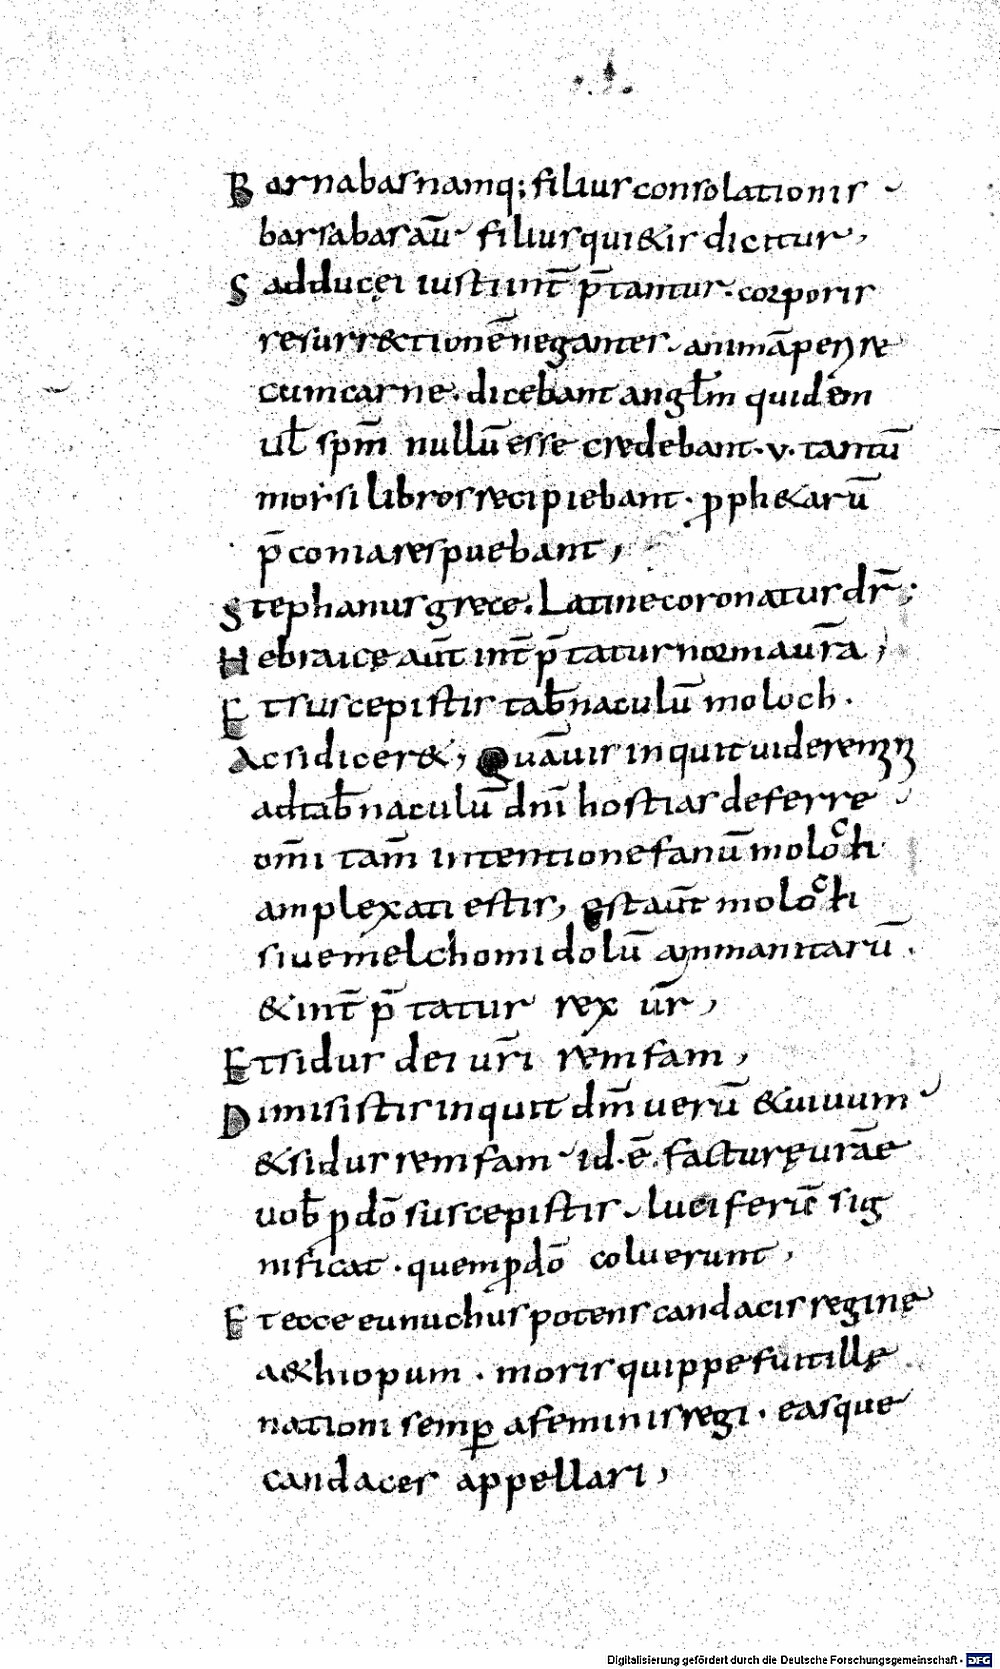 Barnabas namq; filius consolationis
barsabas aū filius qui & is dicitur,
Sadducęi iusti int̄ p̄tantur. corporis
resurrectionē negantes. animā perire
cum carne. dicebant angl̄m quidem
ul̄ sp̄m nullū esse credebant. v. tantū
morsi libros recipiebant. ꝓph&arū
p̄conia respuebant,
Stephanus grece. Latine coronatur dr̄;
Hebraicę aūt int̄ p̄tatur norma ur̄a,
Et suscepistis tab̄naculū moloch.
Ac si dicer&, Quāuis inquit uideremini
ad tab̄naculū dnī hostias deferre
om̄i tam̄ intentione fanū moloch
amplexati estis, est aūt moloch
siue melchom idolū ammanitarū.
& int̄ p̄tatur rex ur̄,
Et sidus dei ur̄i remfam,
Dimisistis inquit dm̄ uerū & uiuum
& sidus remfam id. ē. facturę urāe
uob̄ ꝓ dō suscepistis. luciferū sig
nificat. quem ꝓ dō coluerunt,
Et ecce eunuchus potens candacis regine
a&hiopum. moris quippe fuit illę
nationi semꝑ a feminis regi. easque
candaces appellari,
Digitalisierung gefördert durch die Deutsche Forschungsgemeinschaft - DFG